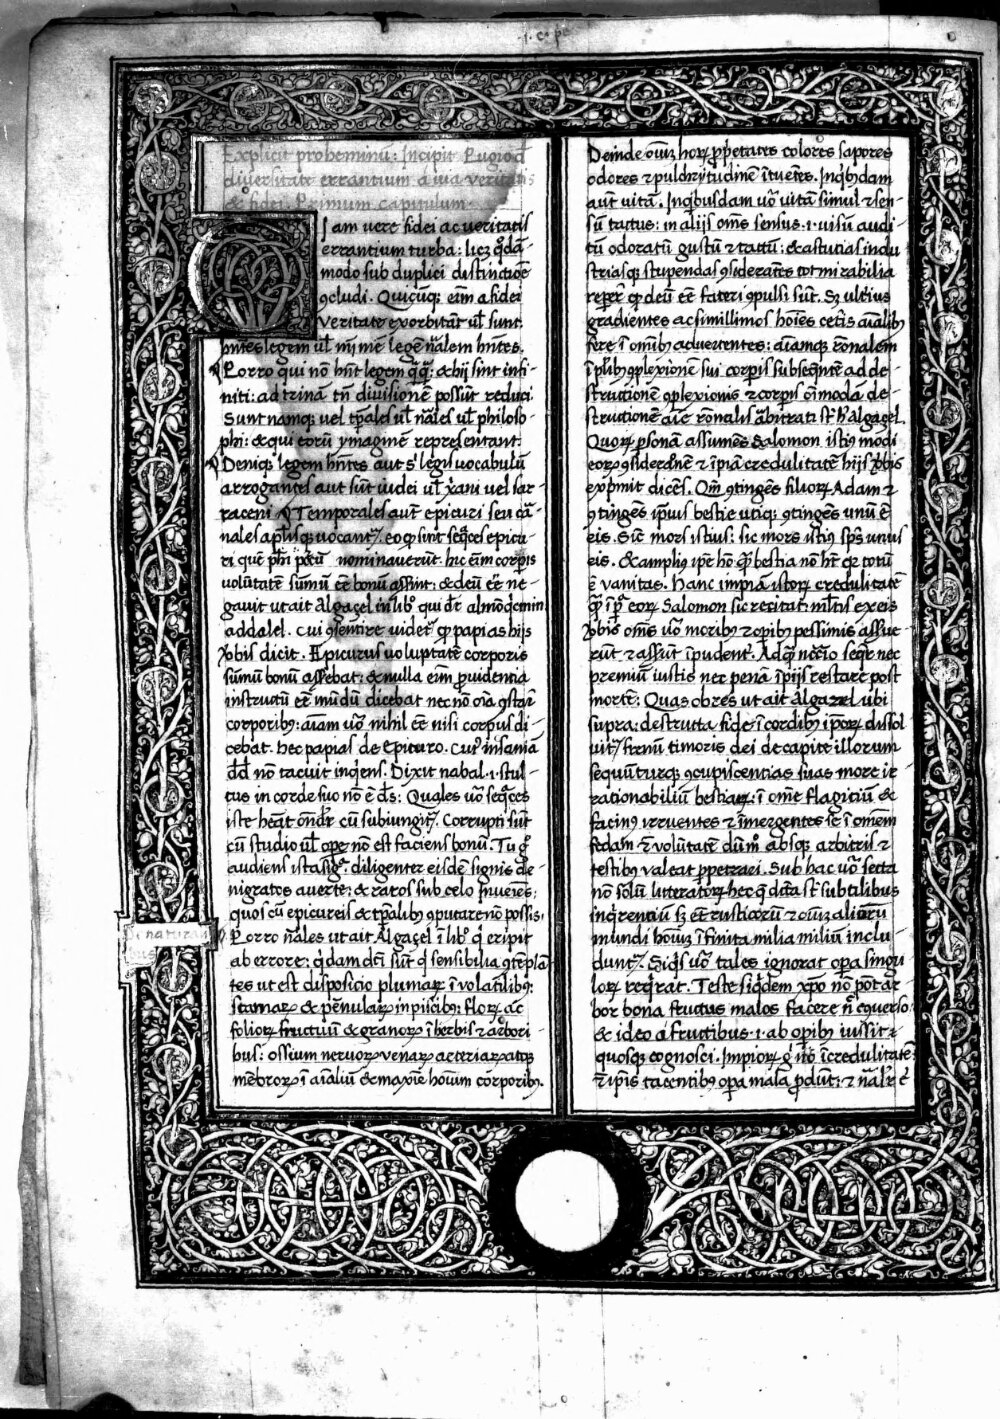 Explicit prohemium: Incipit Pugio d̄
diuersitate errantium a uia veritatis
& fidei. Primum capitulum
iam vere fidei ac veritatis
errantium turba: licꝫ q̇dā-
modo sub duplici distinctiōe
ꝯcludi. Quicūqꝫ eīm a fidei
veritate exorbitāt ul̄ sunt
hn̄tes legem ul̄
Porro qui nō hn̄t legem : & hij sint infi-
niti: ad trinā tn̄ diuisionē possūt reduci
Sunt namqꝫ vel tp̄ales ul̄ nāles ul̄ philoso-
phi: & qui eorū ymaginē representant.
Deniqꝫ legem hn̄tes aut s' legis uocabulū
arrogantes aut sūt iudei ul̄ xp̄ani vel sar-
raceni Temporales aut̄ epicuri seu cā-
nales . eo ꝙ sint seq̄ces epicu-
ri quē ph̄i nominauerūt. hic eīm corpis
voluntatē sūmū eē bonū : & deū eē ne-
gauit ut ait Algaçel in lib̊ qui dr̄ almōdꝫemin
addalel. Cui ꝯsentire videtꝛ ꝙ papias hijs
ꝟbis dicit. Epicurus voluptatē corporis
sūmū bonū : & nulla eīm ꝓuidentia
instructū eē mūdū dicebat nec nō oīa ꝯstar
corporibꝫ: aīam uō nihil eē nisi corpus di-
cebat. hec papias de Epicuro. Cui' insaniā
d̄d nō tacuit inq̇ens. Dixit nabal .i. stul-
tus in corde suo nō ē d̄s: Quales uō seq̄ces
iste heāt cū subiungitꝛ. Corrupti sūt
cū studio ul̄ opꝰ nō est faciens bonū. Tu g̊
audiens ista diligenter eisdē signis de-
nigratos auerte: & raros sub celo īuenies:
quos cū epicureis & tp̄alibꝫ ꝯputare nō possis.
De naturali
bus
Porro nāles ut ait Algaçel ī lib̊ q̇ eripit
ab errore: q̇dam dc̄i sūt q̇ sensibilia ꝯtēplā-
tes ut est dispositio plumaꝝ ī volatilibꝫ:
scamaꝝ & pēnulaꝝ in piscibꝫ: floꝝ ac
folioꝝ fructuū & granoꝝ ī herbis & arbori-
bus: ossium neruoꝝ venaꝝ arteriaꝝ atqꝫ
mēbroꝝ ī aīaliū & maxīe hoīum corporibꝫ.
Deinde oīuꝫ hoꝝ ꝓp̄etates colores sapores
odores & pulchritudinē ītuētes. Inq̇bꝫdam
aūt vitā. Inq̇busdam uō vitā simul & sen-
sū tactus: in alijs om̄s sensus .i. uisū audi-
tū odoratū gustū & tactū: & astucias indu-
striasqꝫ stupendas ꝯsiderātes tot mirabilia
ꝙ deū eē fateri ꝯpulsi sūt. Sꝫ ulteius
gradientes ac simillimos hoīes cetis aīalibꝫ
fere ī oībꝫ aduertentes: aīamqꝫ rōnalem
ī ꝯplexionē sui corpis subseq̄ntē ad de-
structionē ꝯplexionis & corpis oīmodā de-
structionē aīe rōnalis arbitrati st̄. h̄ Algaçel.
Quoꝝ ꝑsonam assumēs Salomon istius modi
eoꝝ ꝯsideratōnē & ip̄iā credulitatē hijs ꝟbis
exp̄mit dicēs. Qm̄ ꝯtingēs filioꝝ Adam &
ꝯtingēs ip̄ius bestie utiqꝫ ꝯtingēs unū ē
eis. Sicut mors istius: sic mors istiꝰ sps̄ unus
eis. & ampliꝰ ipē hō bestia nō hꝫ ꝙ totū
ē vanitas. Hanc impiā istoꝝ credulitatē
eoꝝ Salomon sic recitat: ml̄tis ex eis
ꝟbis om̄s uō moribꝫ & opibꝫ pessimis assue-
rūt & assūt īpudent'. Ad q̄ nccīo seq̇tr nec
premiū iustis nec penā īpijs restare post
mortē: Quas ob res ut ait Algazel ubi
supra: destructa fide ī cordibꝫ ip̄oꝝ dissol-
uitꝛ frenū timoris dei de capite illorum
sequūturqꝫ ꝯcupiscentias suas more ir-
rationabiliū bestiaꝝ: ī om̄e flagitiū &
facinꝰ irruentes & īmergentes se ī omem
fedam & volūtatē dūm absqꝫ arbitris &
testibꝫ valeat ꝑpetrari. Sub hac uō secta
nō solū litteratoꝝ hec q̄ dīa st̄ subtilibus
inq̇rentiū sꝫ & rusticorū & oīuꝫ aliorū
mundi hoīuꝫ īfinita milia miliū inclu-
duntꝛ. Siq̇s uō tales ignorat opa singu-
loꝝ req̇rat. Teste siq̇dem xp̄o nō pōt ar-
bor bona fructus malos facere nc̄ ecuerso
& ideo a fructibus .i. ab opibꝫ iussit
quosqꝫ cognosci. Impioꝝ g̊ īcredulitatē
ip̄is tacentibꝫ opa mala ꝓdūt: